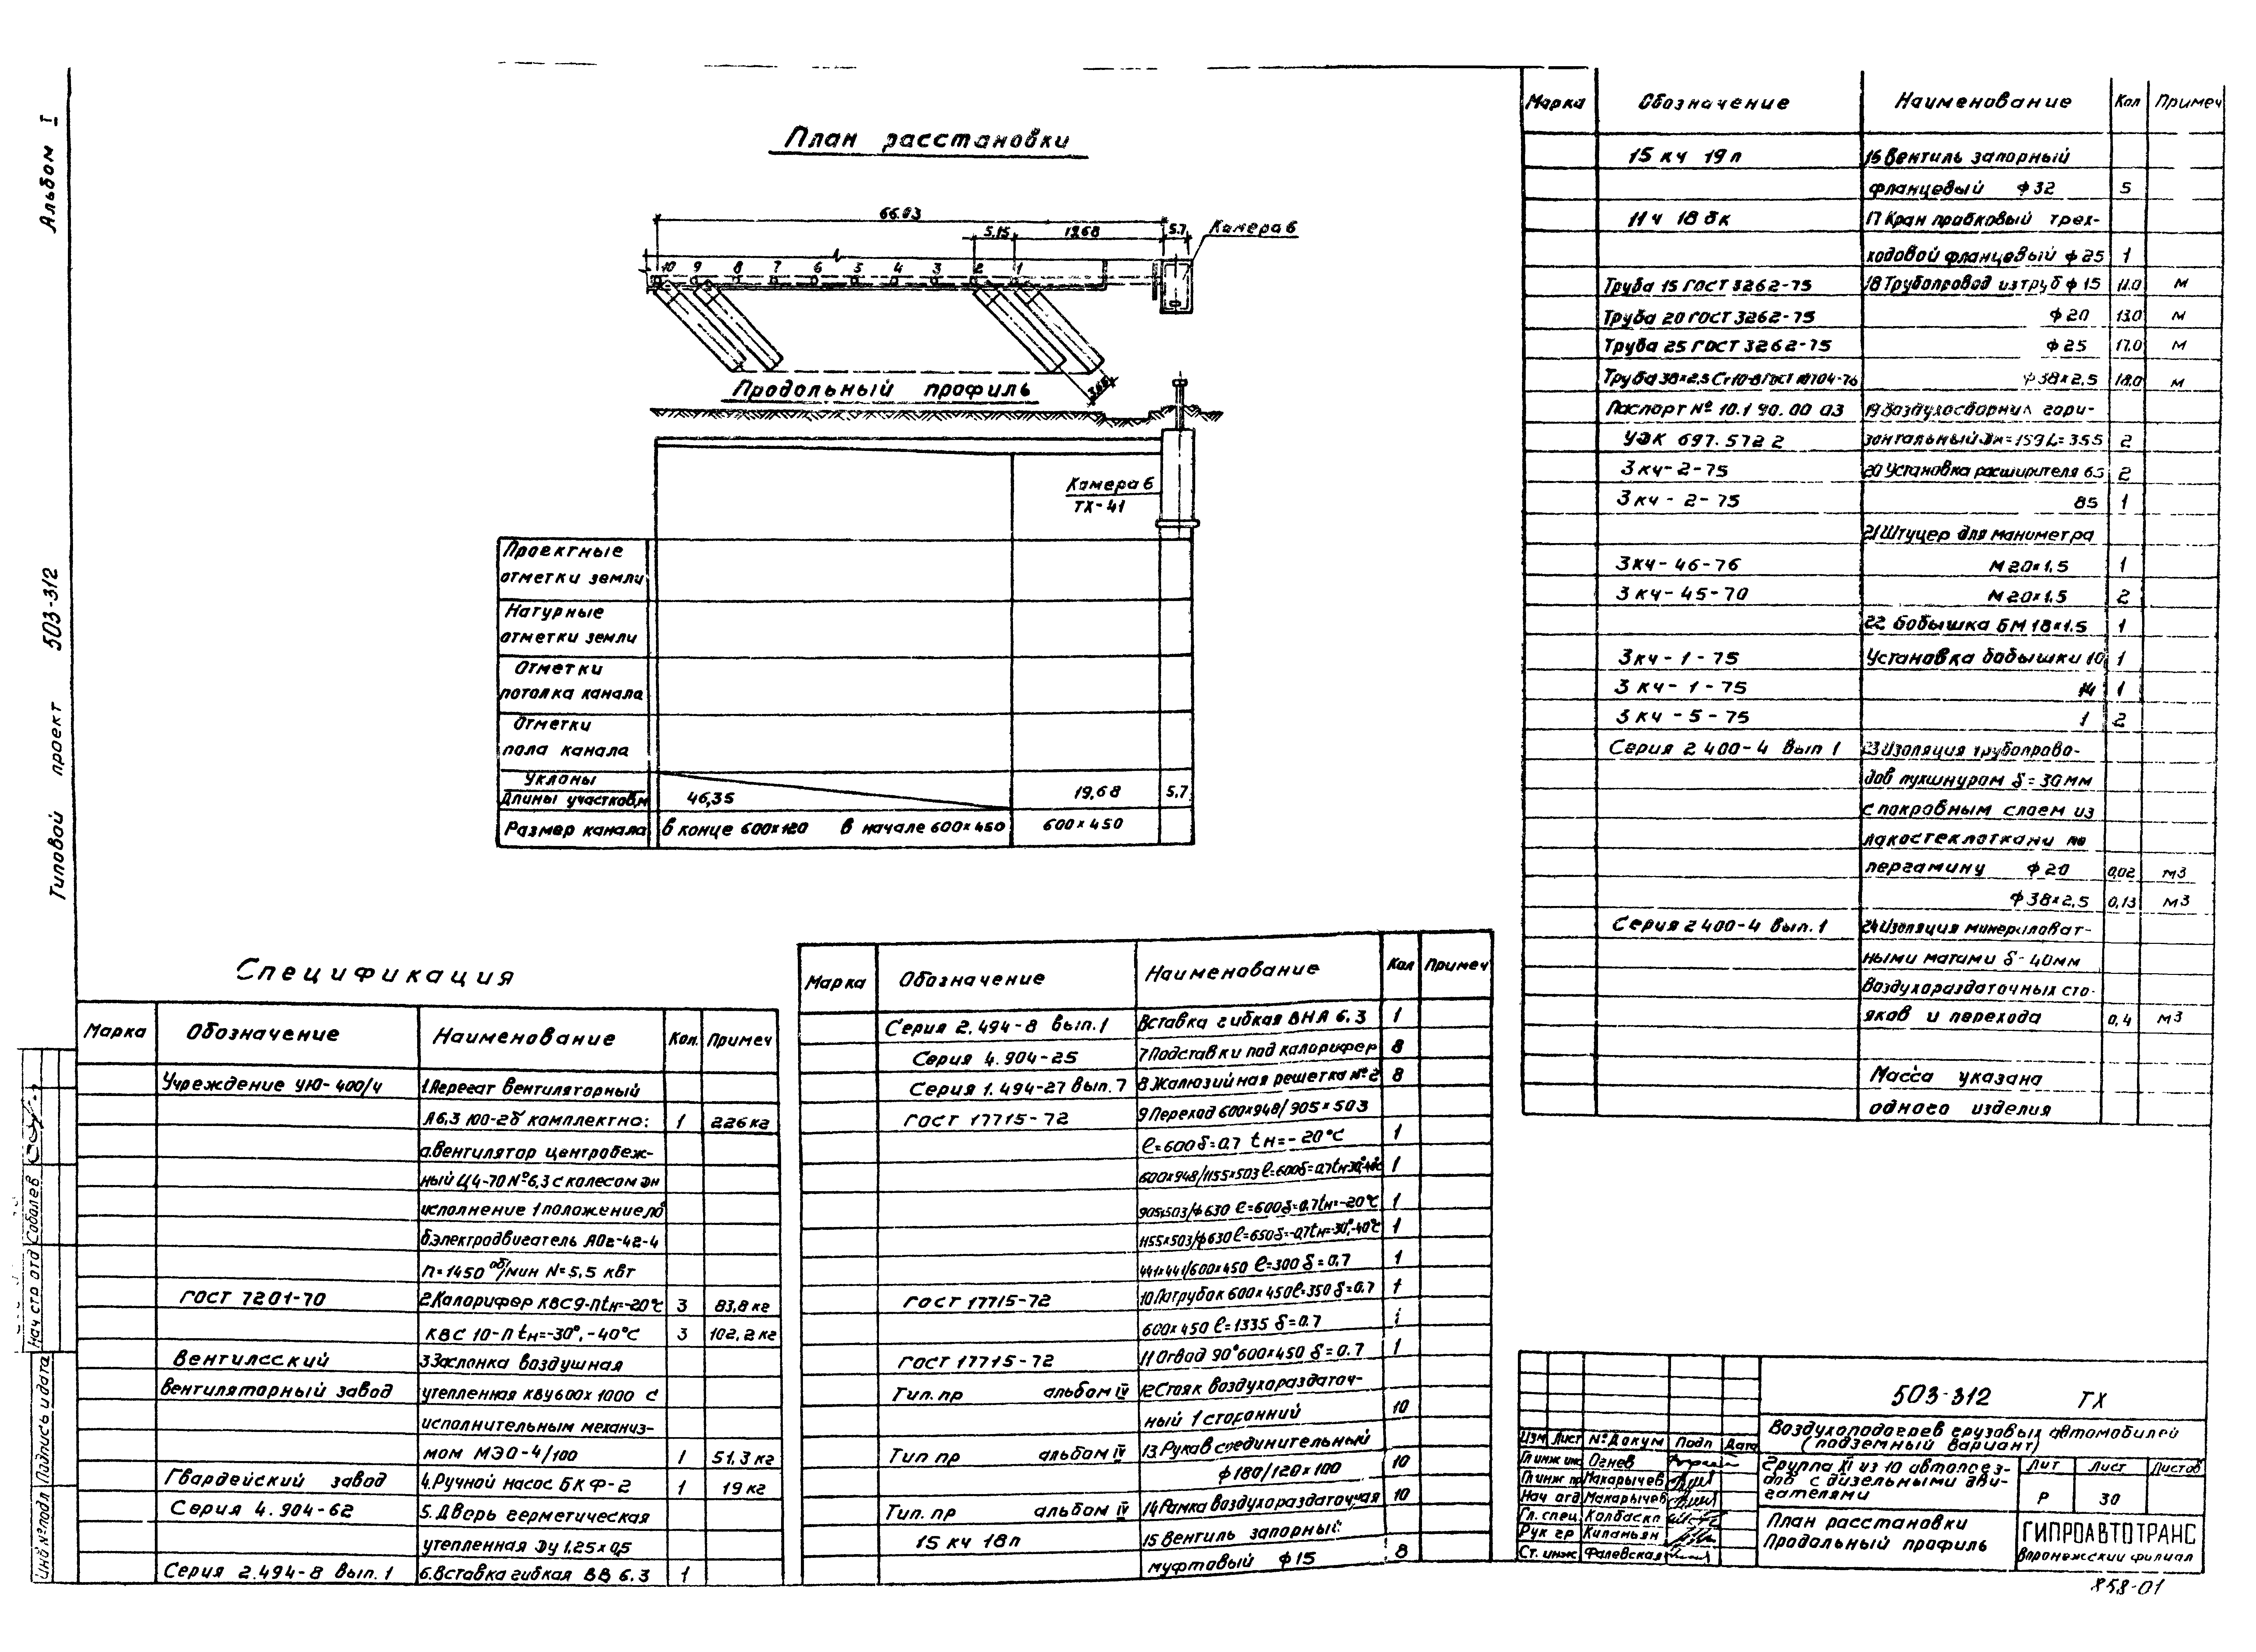 Альбом I
Типовой проект 503-312
План расстановки
66.03
5.15 19.68 5.7
Камера 6
10 9 8 7 6 5 4 3 2 1
3.65
Продольный профиль
Камера 6
ТХ-41
Проектные
отметки земли
Натурные
отметки земли
Отметки
потолка канала
Отметки
пола канала
Уклоны
Длины участков,м 46,35 19,68 5,7
Размер канала в конце 600×120 в начале 600×450 600×450
Спецификация
Марка Обозначение Наименование Кол. Примеч
Учреждение УЮ-400/4 1.Агрегат вентиляторный
А6,3 100-2б комплектно: 1 226 кг
а.вентилятор центробеж-
ный Ц4-70 №6,3 с колесом Дн
исполнение 1 положение
б.электродвигатель АО2-42-4
n=1450 об/мин N=5,5 квт
ГОСТ 7201-70 2.Калорифер КВС9-П tн=-20°С 3 83,8 кг
КВС 10-П tн=-30°,-40°С 3 102,2 кг
Вентилсский 3 Заслонка воздушная
вентиляторный завод утепленная КВУ600×1000 с
исполнительным механиз-
мом МЭО-4/100 1 51,3 кг
Гвардейский завод 4.Ручной насос БКФ-2 1 19 кг
Серия 4.904-62 5. Дверь герметическая
утепленная Ду 1.25×0,5
Серия 2.494-8 Вып.1 6.Вставка гибкая ВВ 6.3 1
Марка Обозначение Наименование Кол Примеч
Серия 2.494-8 вып.1 Вставка гибкая ВНА 6.3 1
Серия 4.904-25 7 Подставки под калорифер 8
Серия 1.494-27 Вып.7 8 Жалюзийная решетка №2 8
ГОСТ 17715-72 9 Переход 600×948/905×503
ℓ=600 δ=0.7 tн=-20°С 1
600×948/1155×503 ℓ=600 δ=0,7 tн=-30°,-40°С 1
905×503/ф630 ℓ=600 δ=0.7 tн=-20°С 1
1155×503/ф630 ℓ=650 δ=0,7 tн=-30°,-40°С 1
441×441/600×450 ℓ=300 δ=0,7 1
ГОСТ 17715-72 10 Патрубок 600×450 ℓ=350 δ=0.7 1
600×450 ℓ=1335 δ=0.7 1
ГОСТ 17715-72 11 Отвод 90° 600×450 δ=0.7 1
Тип.пр альбом IV 12 Стояк воздухораздаточ-
ный 1 сторонний 10
Тип пр альбом IV 13.Рукав соединительный
ф180/120×100 10
Тип.пр альбом IV 14 Рамка воздухораздаточная 10
15 кч 18п 15 Вентиль запорный
муфтовый ф15 8
Марка Обозначение Наименование Кол Примеч
15 кч 19п 16 Вентиль запорный
фланцевый ф32 5
11ч 18 бк 17 Кран пробковый трех-
ходовой фланцевый ф25 1
Труба 15 ГОСТ 3262-75 18 Трубопровод из труб ф15 11.0 м
Труба 20 ГОСТ 3262-75 ф20 13.0 м
Труба 25 ГОСТ 3262-75 ф25 17.0 м
Труба 38×2,5 Ст10-В ГОСТ 10704-76 ф38×2,5 18.0 м
Паспорт № 10.1 90.00 03 19 Воздухосборник гори-
УДК 697.572 2 зонтальный Дн=159 L=355 2
3 кч-2-75 20 Установка расширителя 65 2
3 кч-2-75 85 1
21 Штуцер для манометра
3кч-46-76 М20×1,5 1
3 кч-45-70 М20×1.5 2
22 бобышка БМ 18×1.5 1
3кч-1-75 Установка бобышки 10 1
3 кч-1-75 14 1
3 кч-5-75 1 2
Серия 2 400-4 Вып 1 23 Изоляция трубопрово-
дов пухшнуром δ=30 мм
с покровным слоем из
лакостеклоткани по
пергамину ф20 0,02 м3
ф38×2,5 0,13 м3
Серия 2 400-4 Вып.1 24 Изоляция минераловат-
ными матами δ-40мм
Воздухораздаточных сто-
яков и перехода 0,4 м3
Масса указана
одного изделия
Нач стр отд Соболев
Инв № подл Подпись и дата
503-312 ТХ
Воздухоподогрев грузовых автомобилей
(подземный вариант)
Изм Лист № Докум Подп Дата
Гл инж инс Огнев
Гл инж пр Макарычев
Нач отд Макарычев
Гл. спец. Колбаскп
Рук гр Кипаньян
Ст. инж Фалевская
Группа XI из 10 автопоез-
дов с дизельными дви-
гателями
Лит Лист Листов
Р 30
План расстановки
Продольный профиль
ГИПРОАВТОТРАНС
Воронежский филиал
858-01